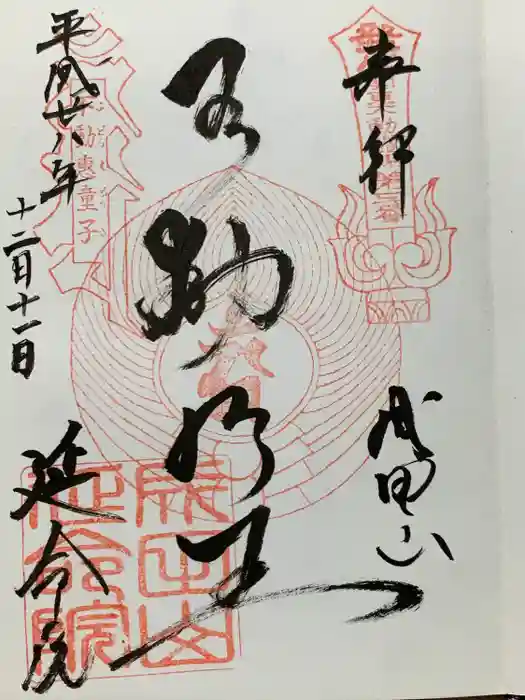 奉拝
成田山
不動明王
平成廿八年
十二月十一日
延命院
動恵童子
成田山
延命院